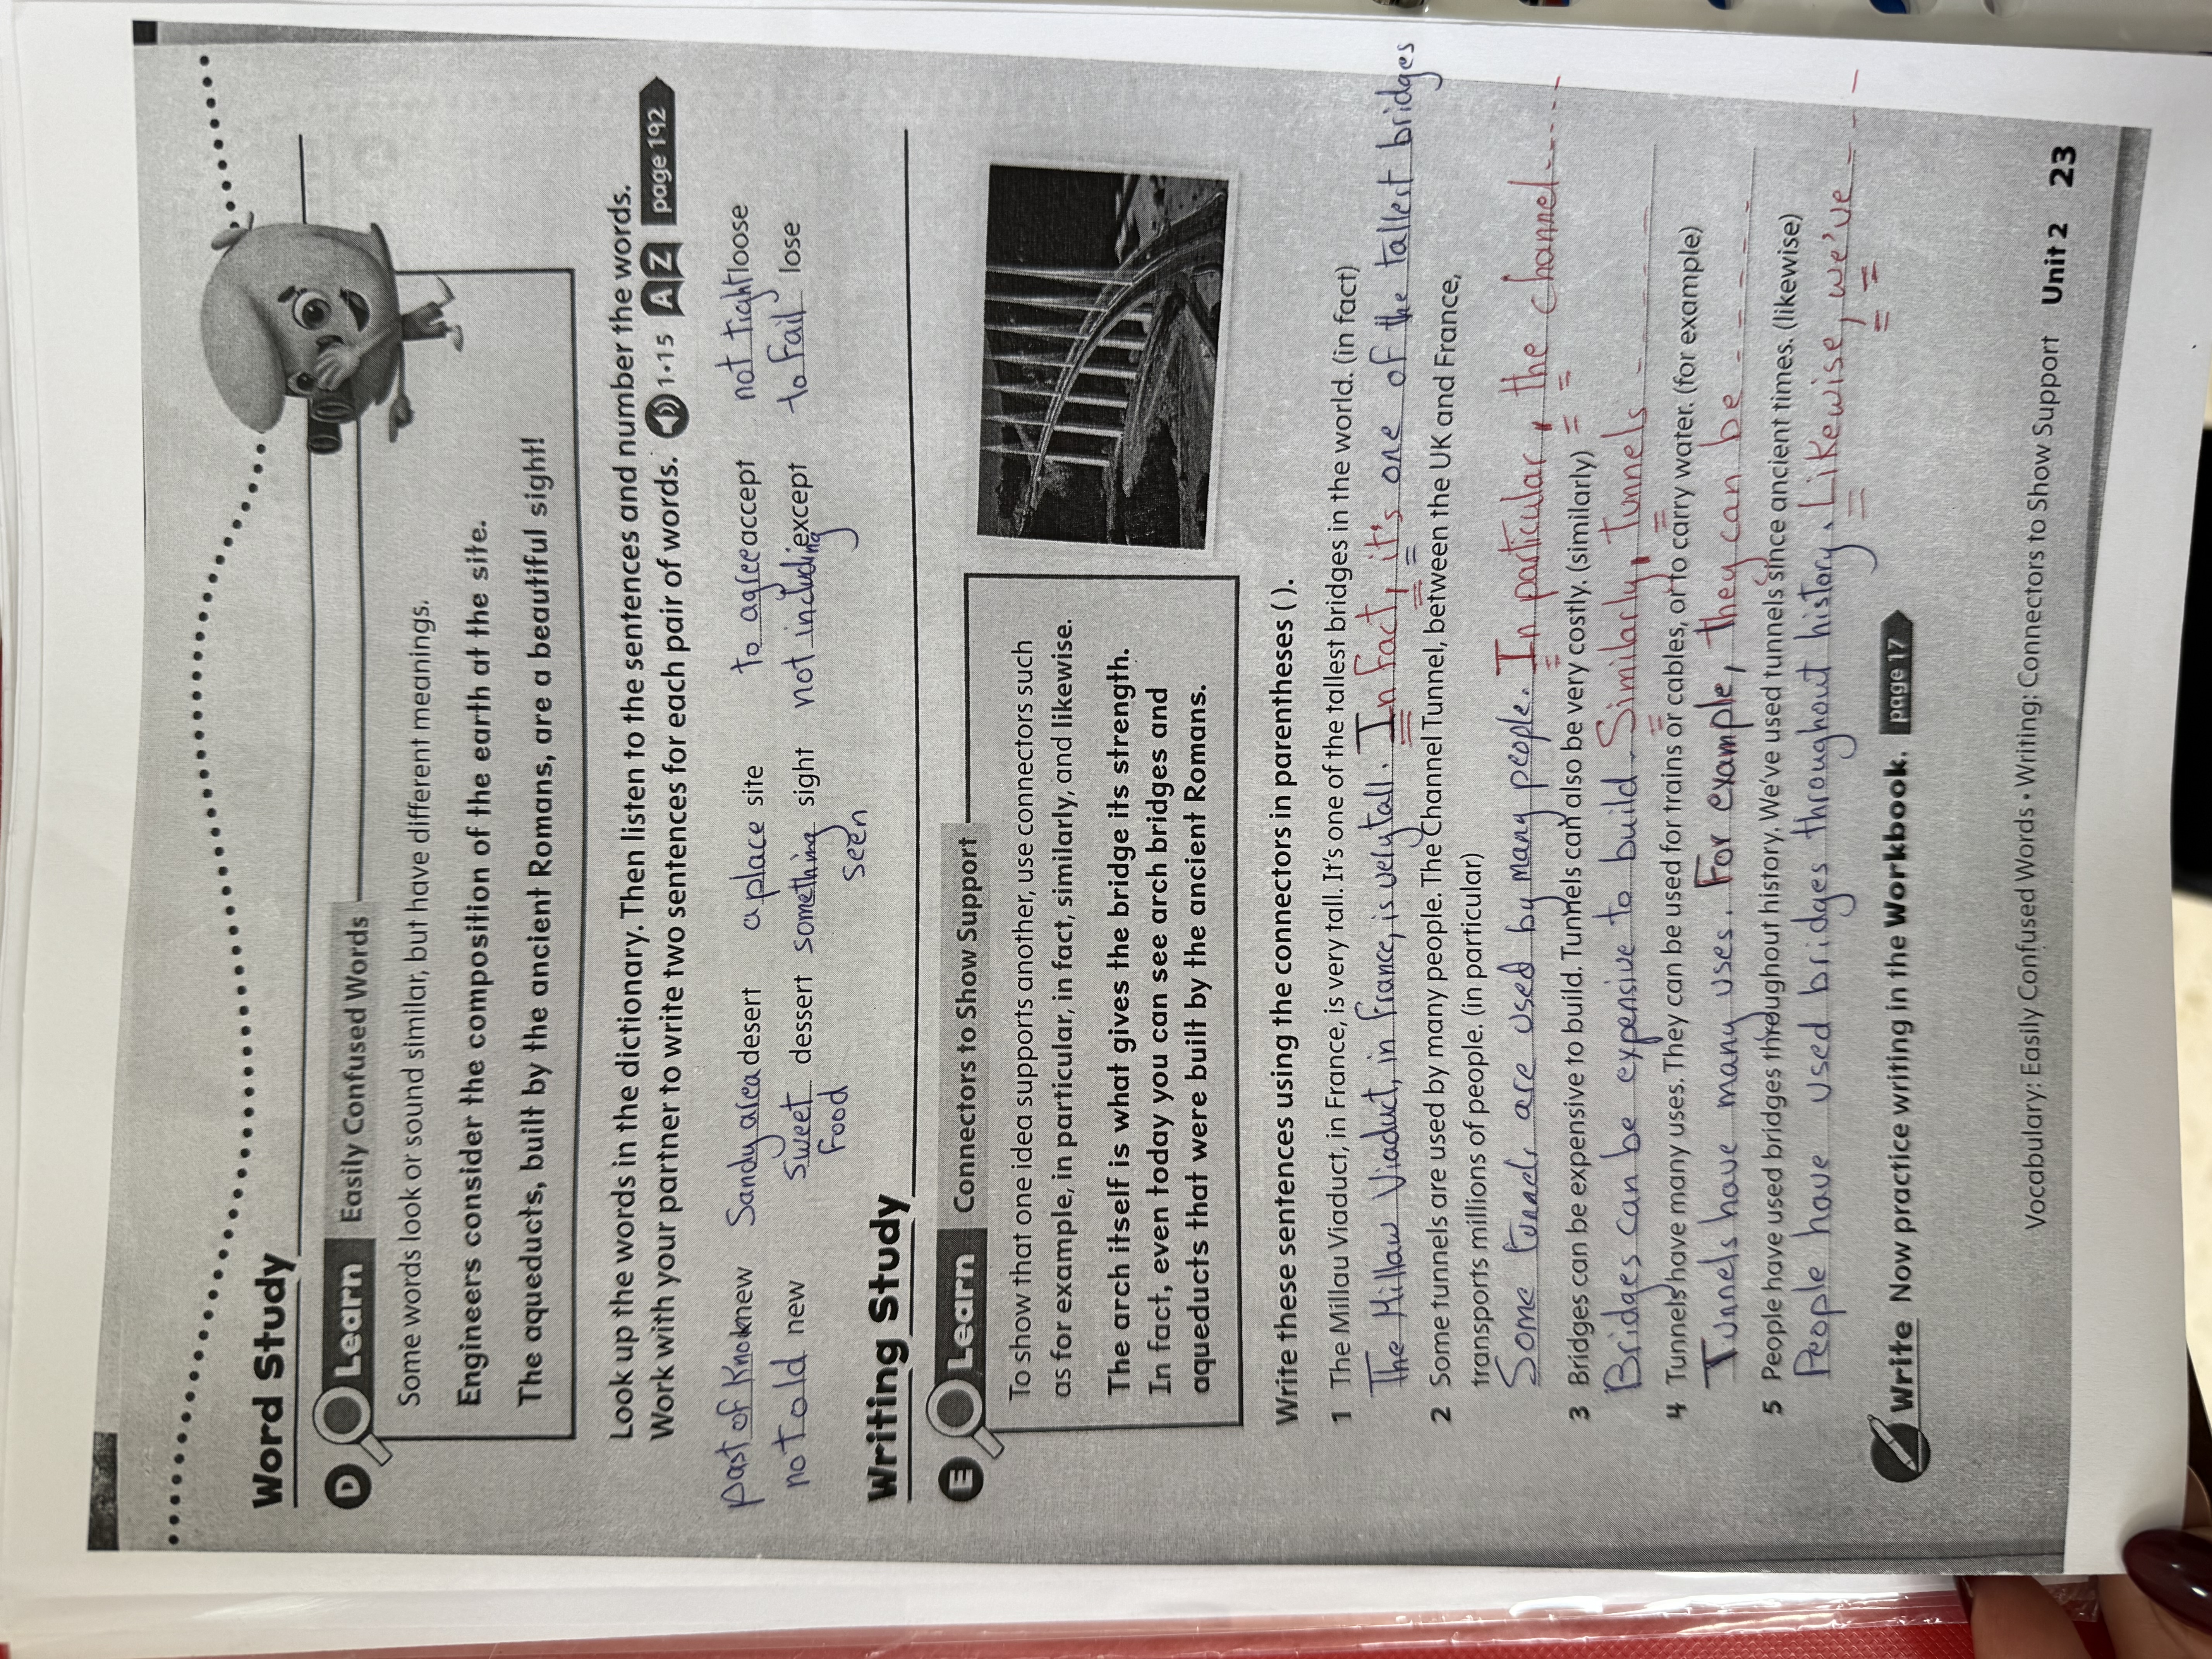 Word Study
D Learn Easily Confused Words
Some words look or sound similar, but have different meanings.
Engineers consider the composition of the earth at the site.
The aqueducts, built by the ancient Romans, are a beautiful sight!
Look up the words in the dictionary. Then listen to the sentences and number the words.
Work with your partner to write two sentences for each pair of words. 1·15 A Z page 192
past of Know knew Sandy area desert a place site to agree accept not tight loose
not old new sweet food dessert something seen sight not including except to fail lose
Writing Study
E Learn Connectors to Show Support
To show that one idea supports another, use connectors such
as for example, in particular, in fact, similarly, and likewise.
The arch itself is what gives the bridge its strength.
In fact, even today you can see arch bridges and
aqueducts that were built by the ancient Romans.
Write these sentences using the connectors in parentheses ( ).
1 The Millau Viaduct, in France, is very tall. It's one of the tallest bridges in the world. (in fact)
The Millaw Viaduct, in france, is vely tall. In fact, it's one of the tallest bridges
2 Some tunnels are used by many people. The Channel Tunnel, between the UK and France,
transports millions of people. (in particular)
Some tunnels are used by many people. In particular, the channel....
3 Bridges can be expensive to build. Tunnels can also be very costly. (similarly)
Bridges can be expensive to build. Similarly, tunnels - - - -
4 Tunnels have many uses. They can be used for trains or cables, or to carry water. (for example)
Tunnels have many uses. For example, they can be - - - - -
5 People have used bridges throughout history. We've used tunnels since ancient times. (likewise)
People have used bridges throughout history. Likewise, we've - - -
Write Now practice writing in the Workbook. page 17
Vocabulary: Easily Confused Words • Writing: Connectors to Show Support Unit 2 23